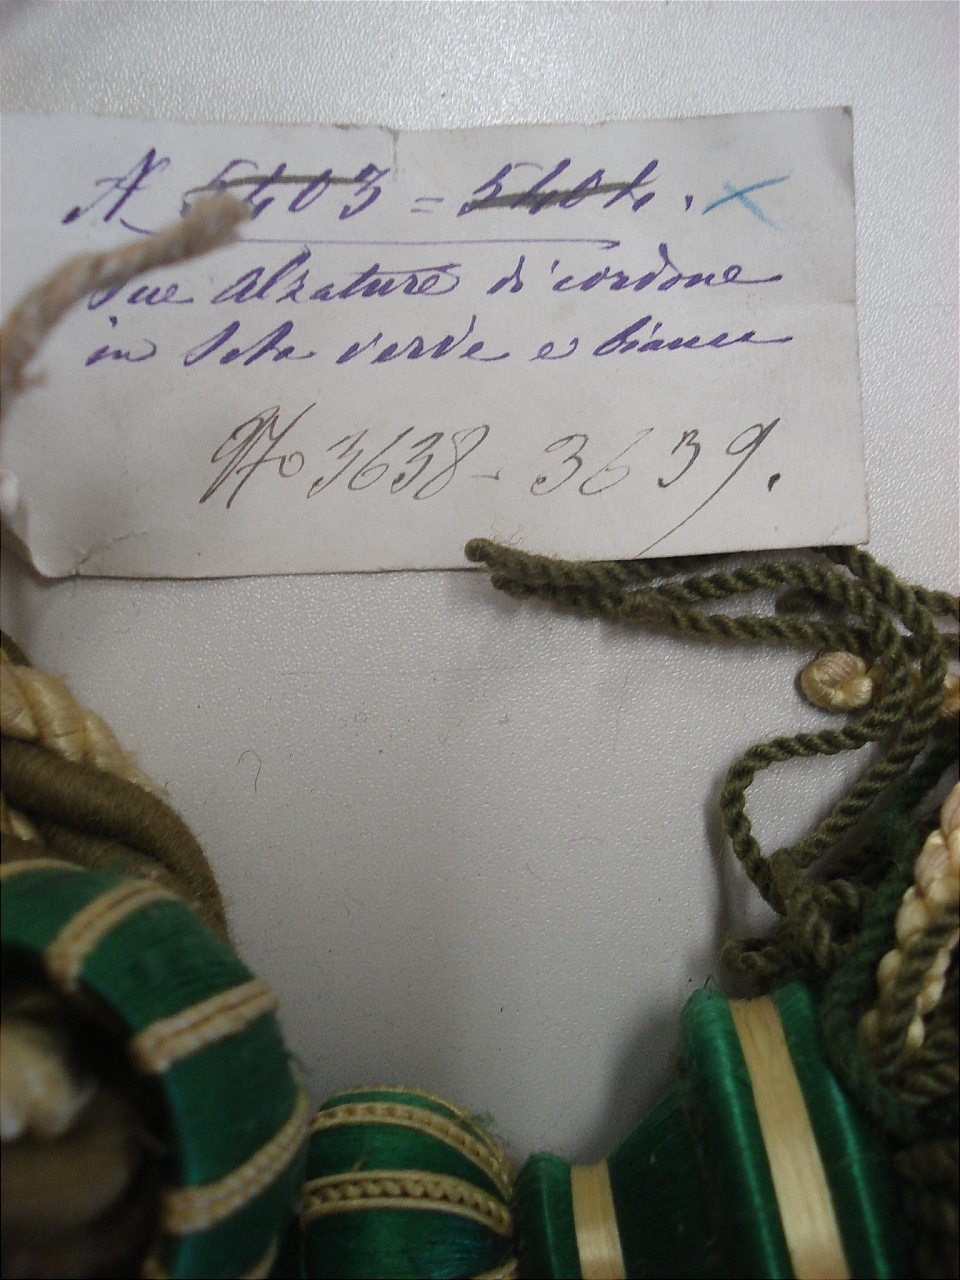 N 5403 = 5404.
Due Alzature di cordone
in Seta verde e bianca
No 3638 - 3639.